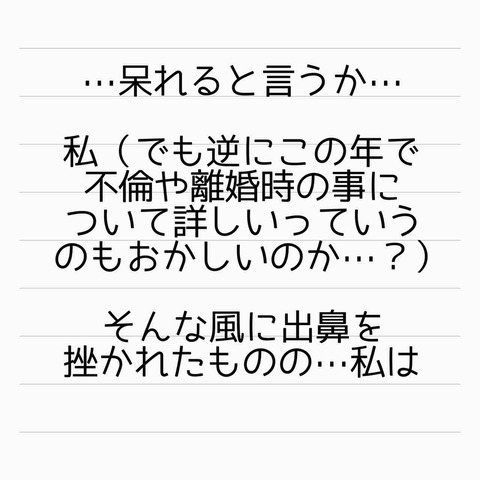 …呆れると言うか…
私（でも逆にこの年で
不倫や離婚時の事に
ついて詳しいっていう
のもおかしいのか…？）
そんな風に出鼻を
挫かれたものの…私は